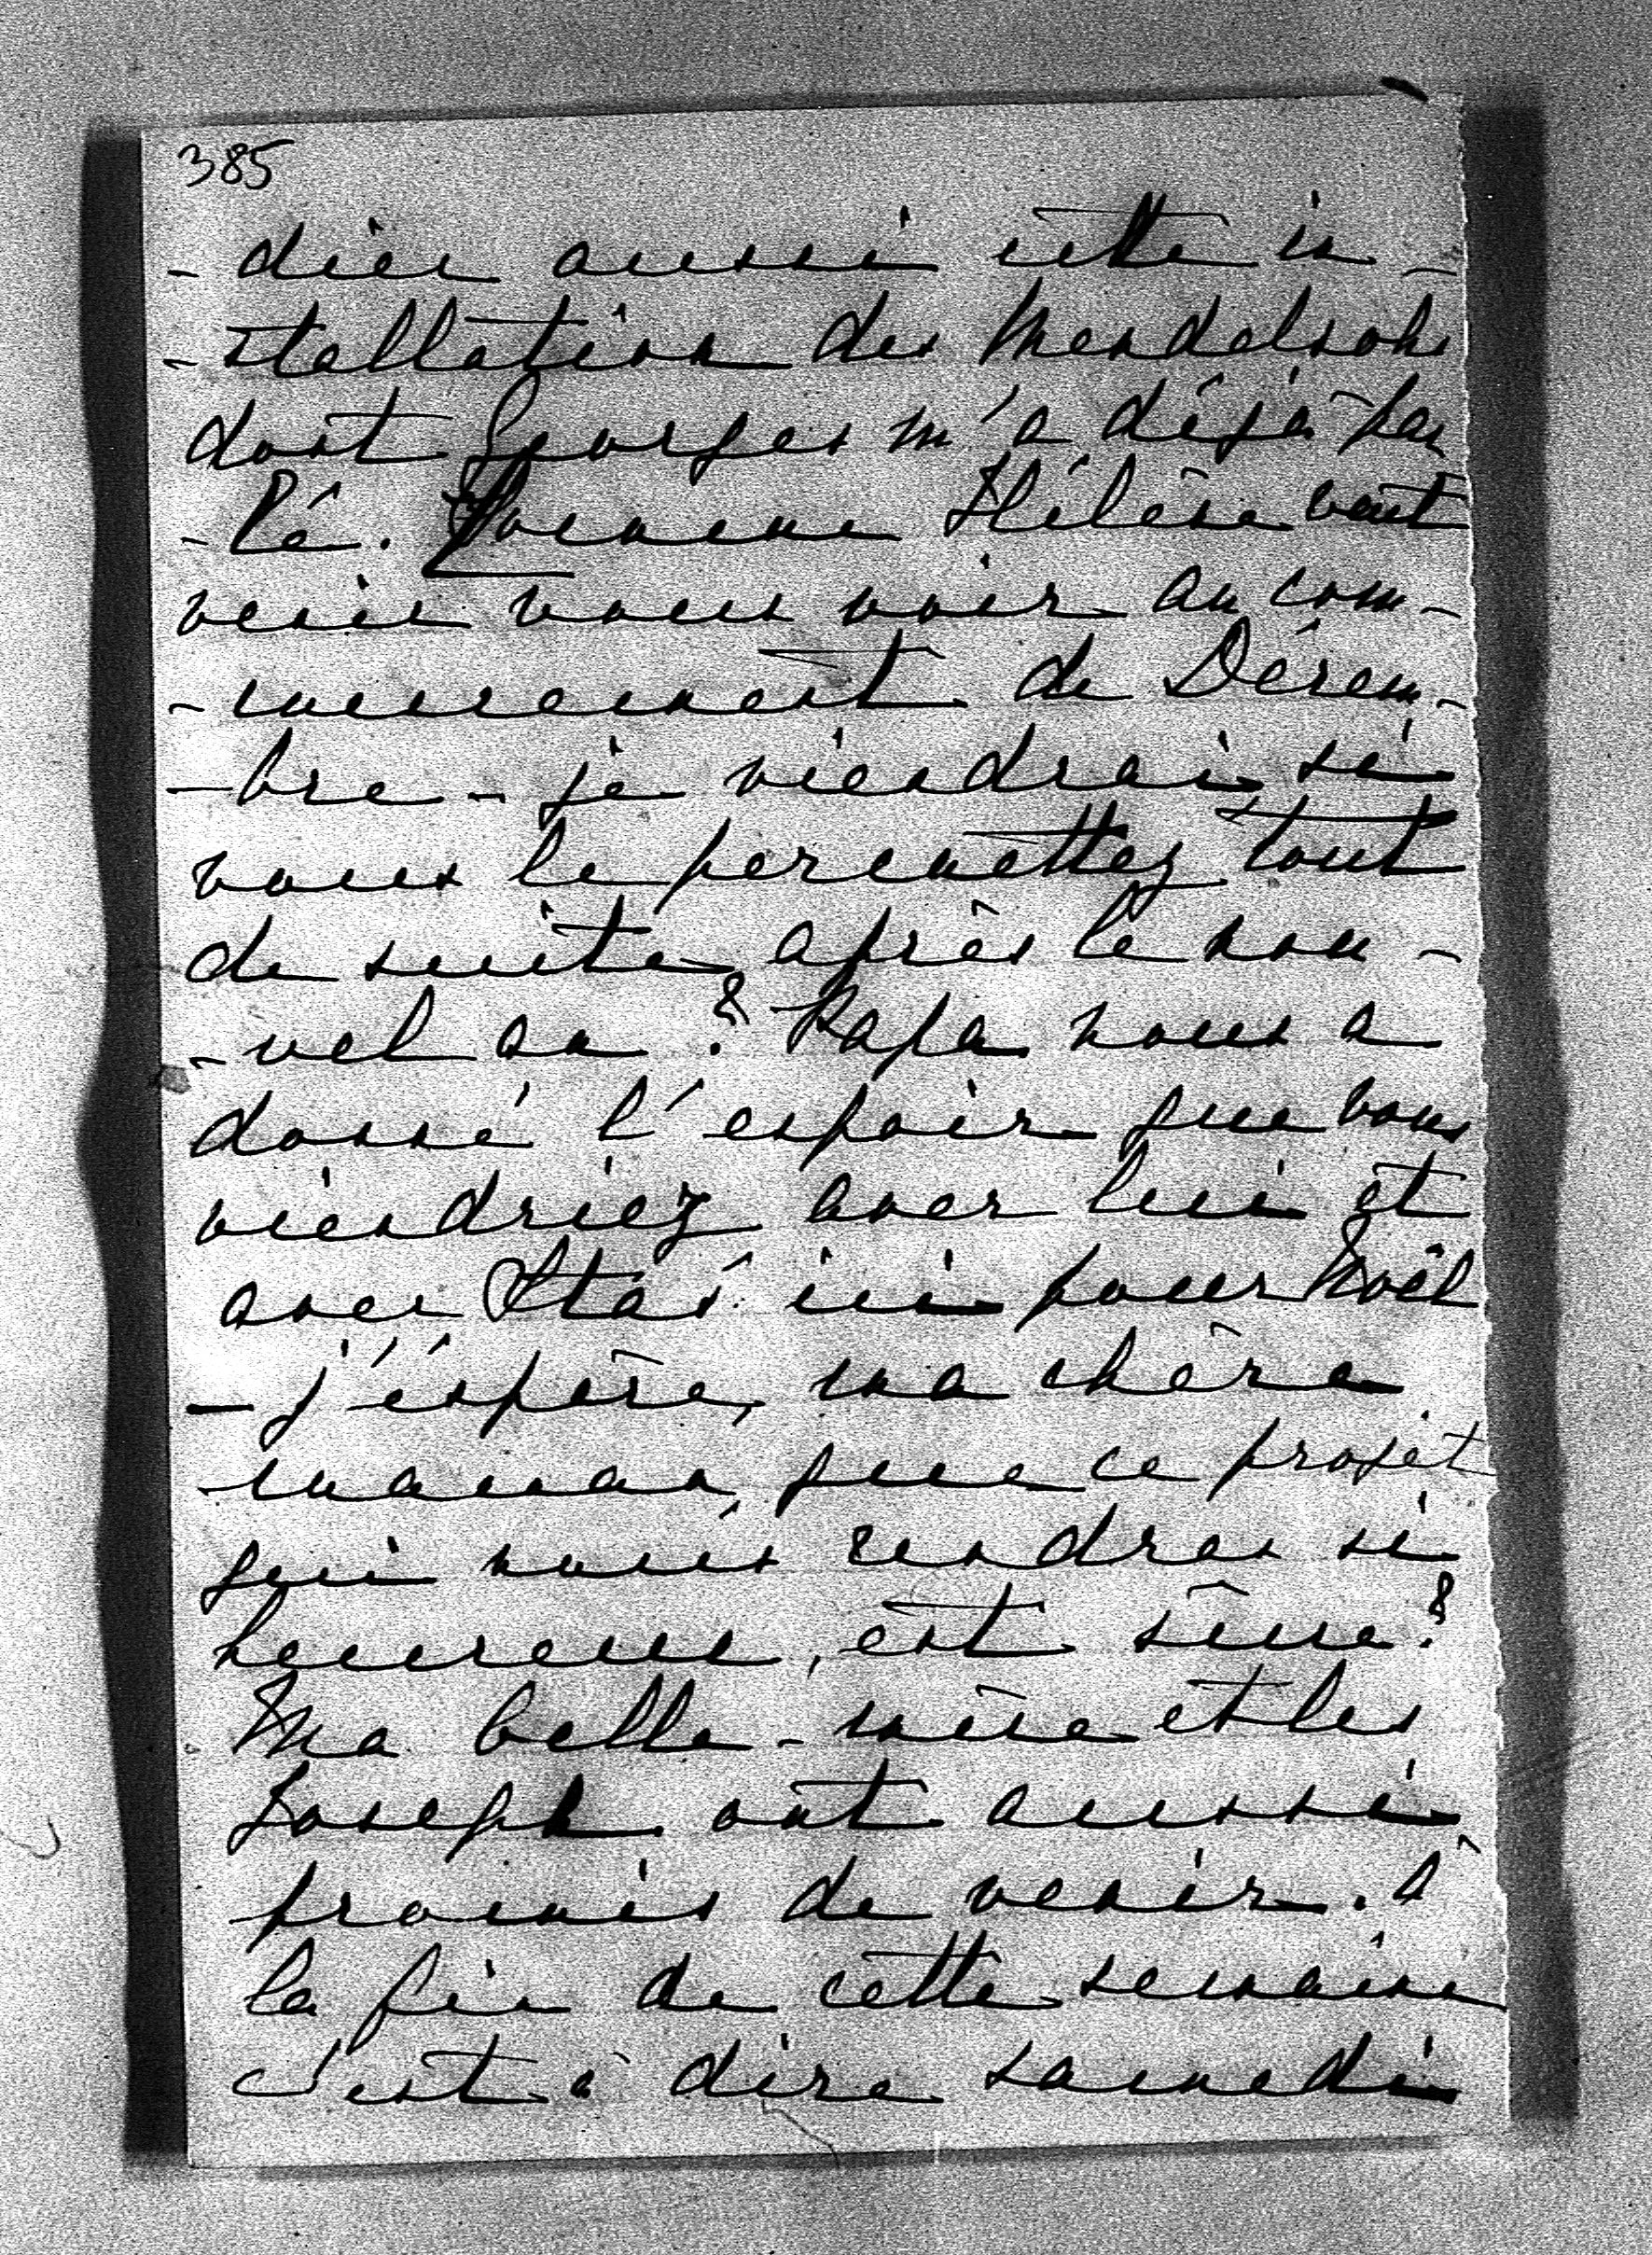 385
- dier aussi cette in -
- stallation des Mendelsohn
dont Georges m'a déjà par
- lé. Comme Hélène veut
venir vous voir au com -
- mencement de Décem -
- bre - je viendrai si
vous le permettez tout
de suite après le nou -
- vel an ? Papa nous a
donné l'espoir que vous
viendriez avec lui et
avec Staś ici pour Noël
- j'éspère, ma chère
maman, que ce projet
qui nous rendra si
heureux, est sûre ?
Ma belle - mère et les
Joseph ont aussi
promis de venir. À
la fin de cette semaine
c'est à dire samedi